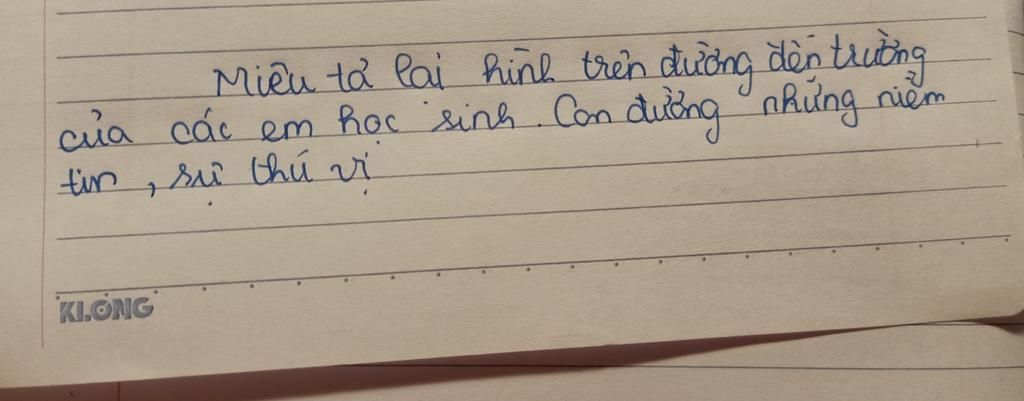 Miêu tả lại hình trên đường đến trường
của các em học sinh. Con đường những niềm
tin, sự thú vị
KLONG